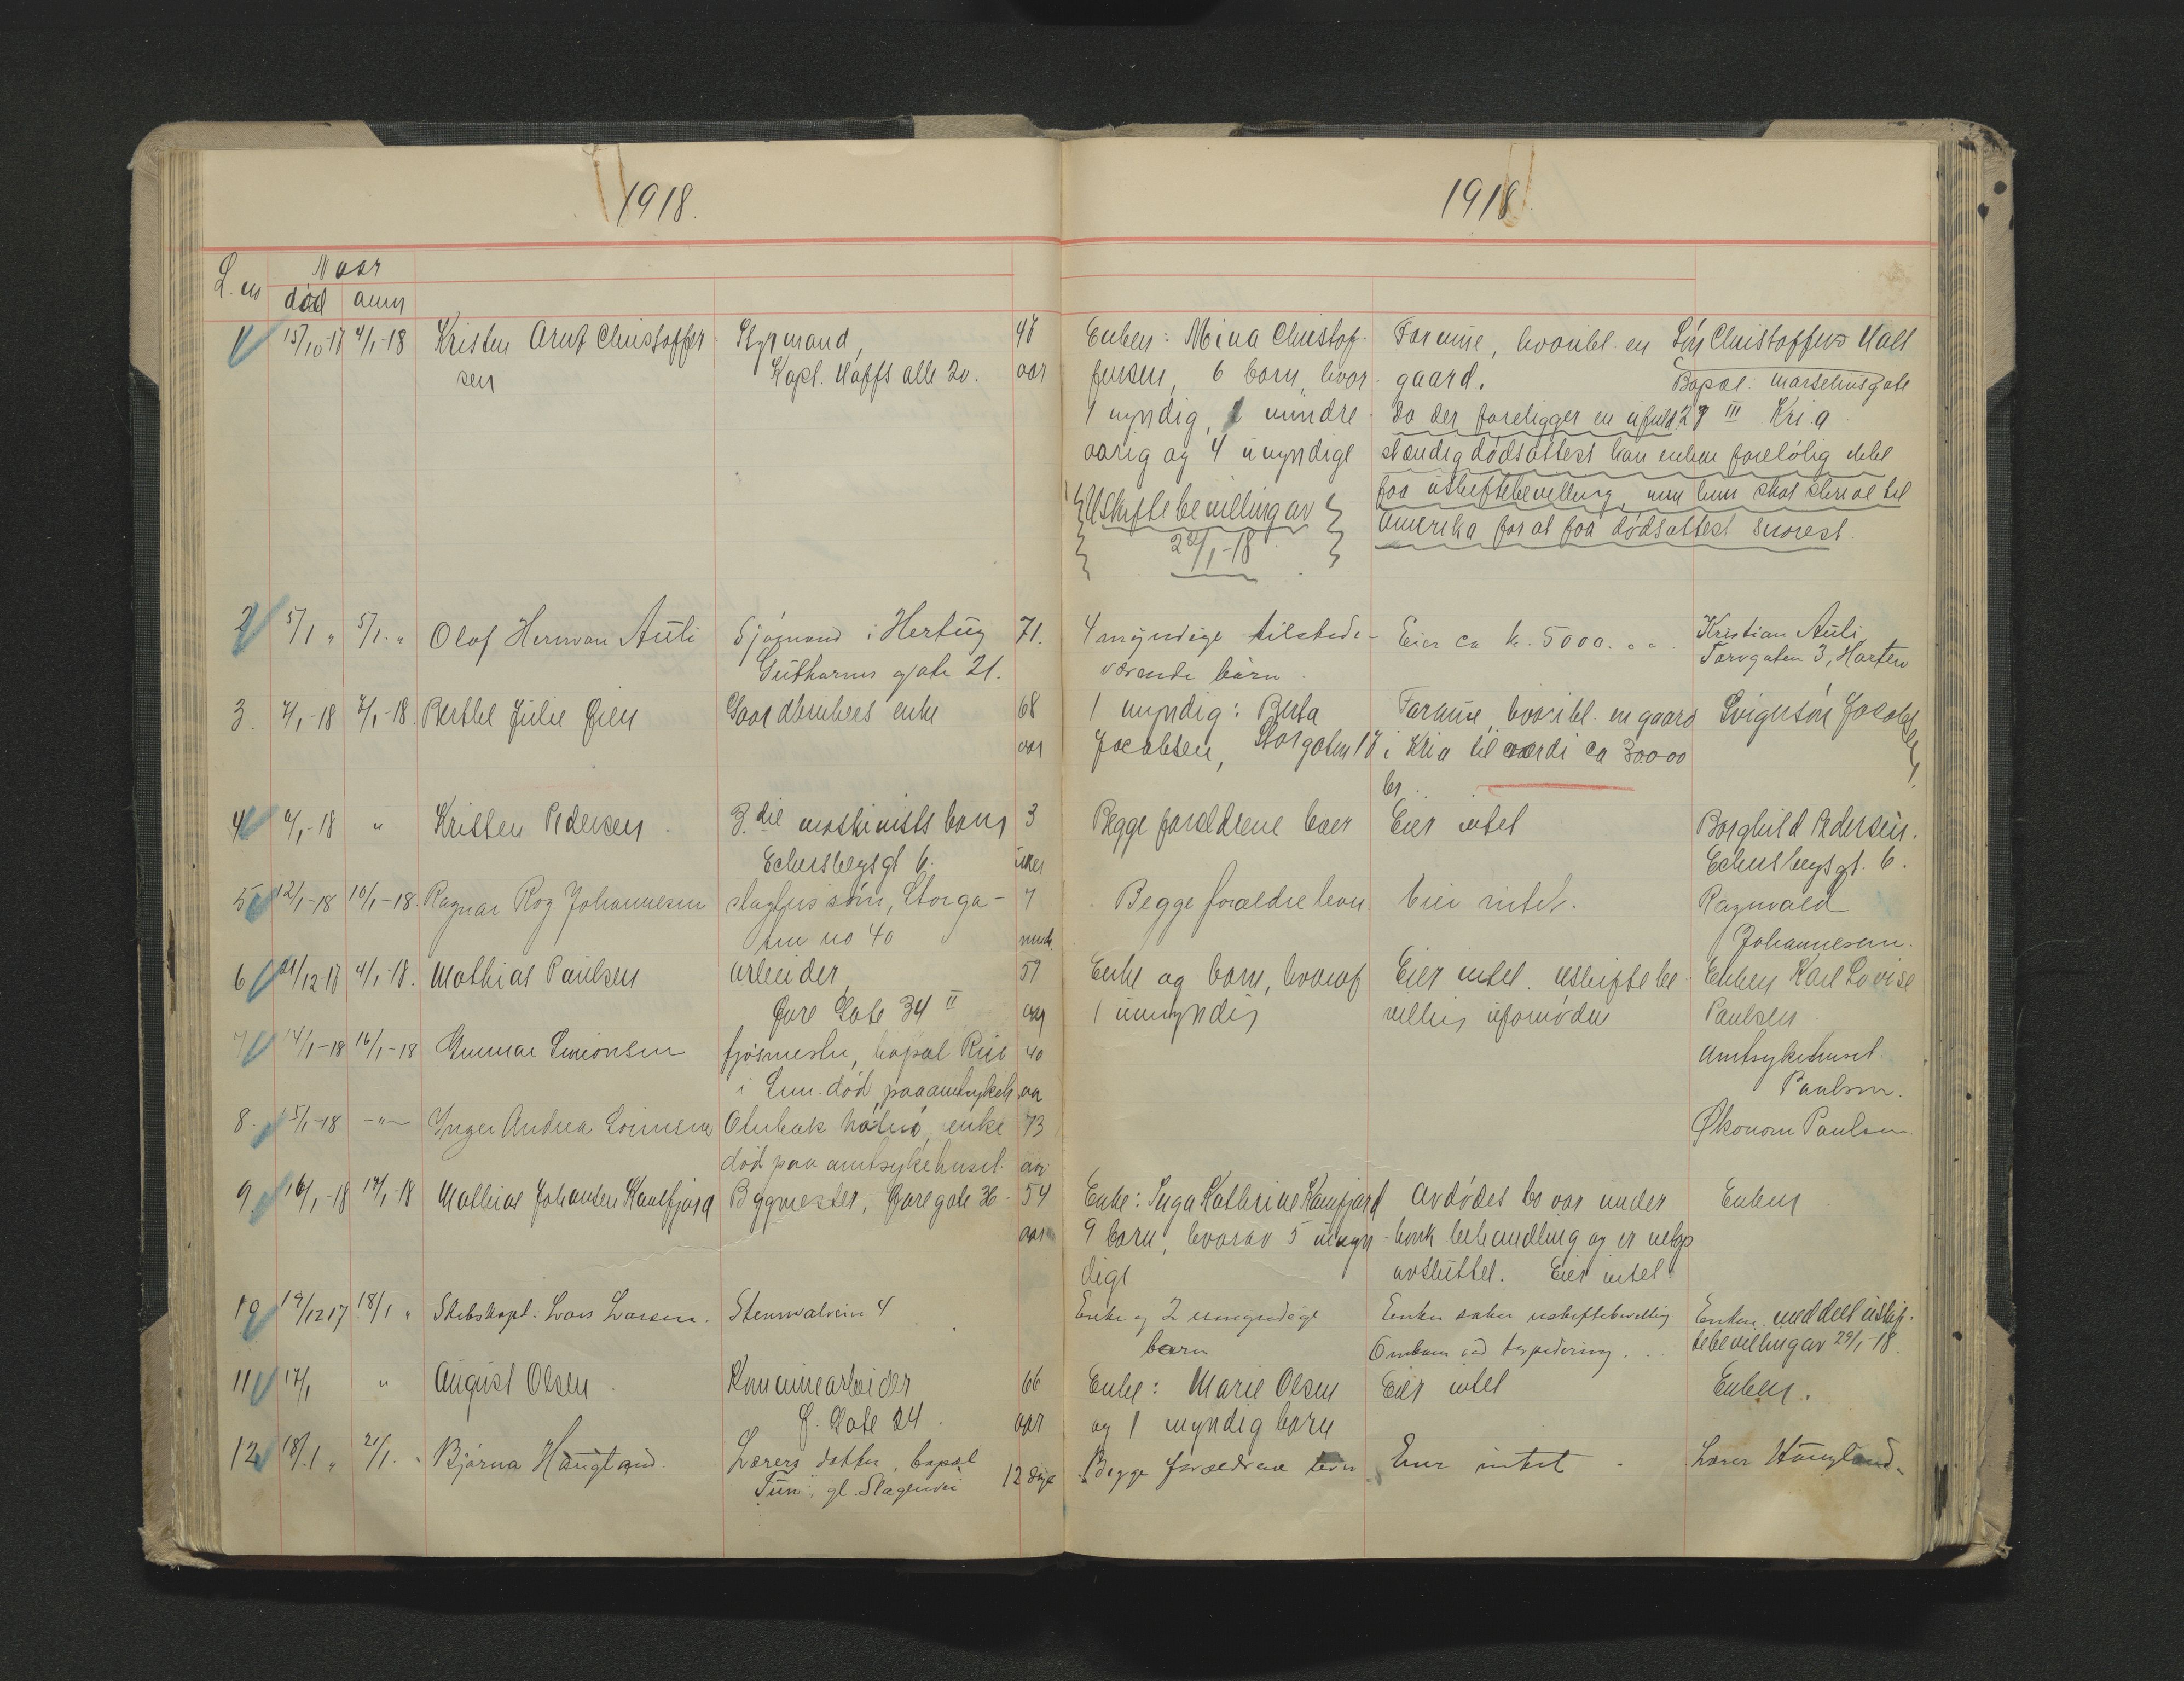 1918.
1918
L. no
Naar
død
anm
1 15/10-17 4/1-18 Kristen Arnt Christoffer- Styrmand, 47 Enken: Mina Christof- Formue, hvoribl. en Søn Christoffer
sen Kapt. Hoffs alle 20. aar fersen, 6 barn, hvor- gaard. Bopæl: Marselius gate
1 myndig, 1 mindre- Da der foreligger en ufuld- 29 III Kr.ia
aarig og 4 umyndige stændig dødsattest kan enken foreløbig ikke
Uskiftebevilling av faa uskiftebevilling, men hun skal skrive til
22/1-18 Amerika for at faa dødsattest snarest.
2 5/1 " 5/1 " Olaf Herman Auli Sjømand i Hertug 71. 4 myndige tilstede- Eier ca kr. 5000. Kristian Auli
Guthorms gate 21. værende barn. Torvgaten 3, Horten
3. 7/1-18 7/1-18. Berthe Julie Øien Gaardbrukers enke 68 1 myndig: Berta Formue, hvoribl. en gaard Svigersøn Jacobsen
aar Jacobsen, Storgaten 17 i Kria til værdi ca 30000
kr.
4 6/1-18 " Kristen Pedersen. 3.die maskinists barn 3 Begge forældrene lever Eier intet Borghild Pedersen.
Eckersbergsgt 6. uker Eckersbergsgt. 6.
5 12/1-18 10/1-18. Ragnar Rog. Johannesen slagters søn, Storga- 7 Begge forældre lever Eier intet. Ragnvald
ten no 40 mnd. Johannesen.
6 21/12-17 4/1-18. Mathias Paulsen Arbeider, 59 Enke og barn, hvorav Eier intet. Uskiftebe- Enken Karl Lovise
Øvre Gate 34 II aar 1 umyndig villing ufornøden Paulsen.
7 14/1-18 16/1-18 Gunnar Simonsen fjøsmester, bopæl Rise 40 Amtsykehuset.
i Sem. død paa amtsykeh. aar Paulsen.
8. 15/1-18 -"- Inger Andrea Enke 73 Økonom Paulsen.
død paa amtsykehuset. aar
9. 16/1-18 17/1-18 Mathias Johansen Kamfjord Bygmester, Øvregate 36. 54 Enke: Inga Kathrine Kamfjord Avdødes bo var under Enken
aar 9 barn, hvorav 5 umyn- konk. behandling og er netop
dige avsluttet. Eier intet
10 19/12 17 18/1 " Skibskapt. Lars Larsen. Stenmalveien 4 Enke og 2 umyndige Enken søker uskiftebevilling. Enken meddelt uskif-
barn tebevilling av 29/1-18.
11 17/1 " August Olsen. Kommunearbeider 66 Enke: Marie Olsen Eier intet Enken.
Ø. Gate 24. aar og 1 myndig barn
12 18/1 " 21/1 " Bjørna Haugland. Lærers datter, bopæl 12 dage Begge forældrene lever Eier intet. Lærer Haugland.
Tun gl. Slagenvei